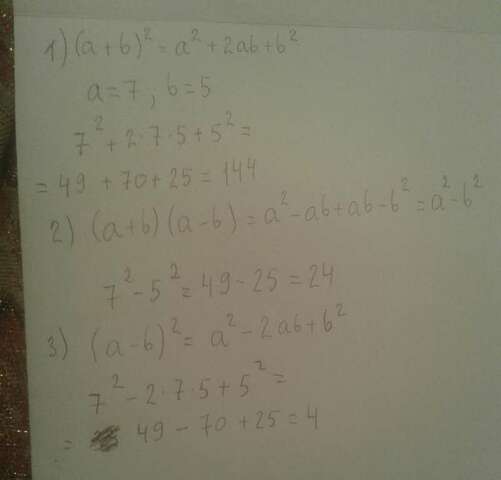 1) (a+b)² = a² + 2ab + b²
a = 7 ; b = 5
7² + 2·7·5 + 5² =
= 49 + 70 + 25 = 144
2) (a+b)(a-b) = a² - ab + ab - b² = a² - b²
7² - 5² = 49 - 25 = 24
3) (a-b)² = a² - 2ab + b²
7² - 2·7·5 + 5² =
= 49 - 70 + 25 = 4